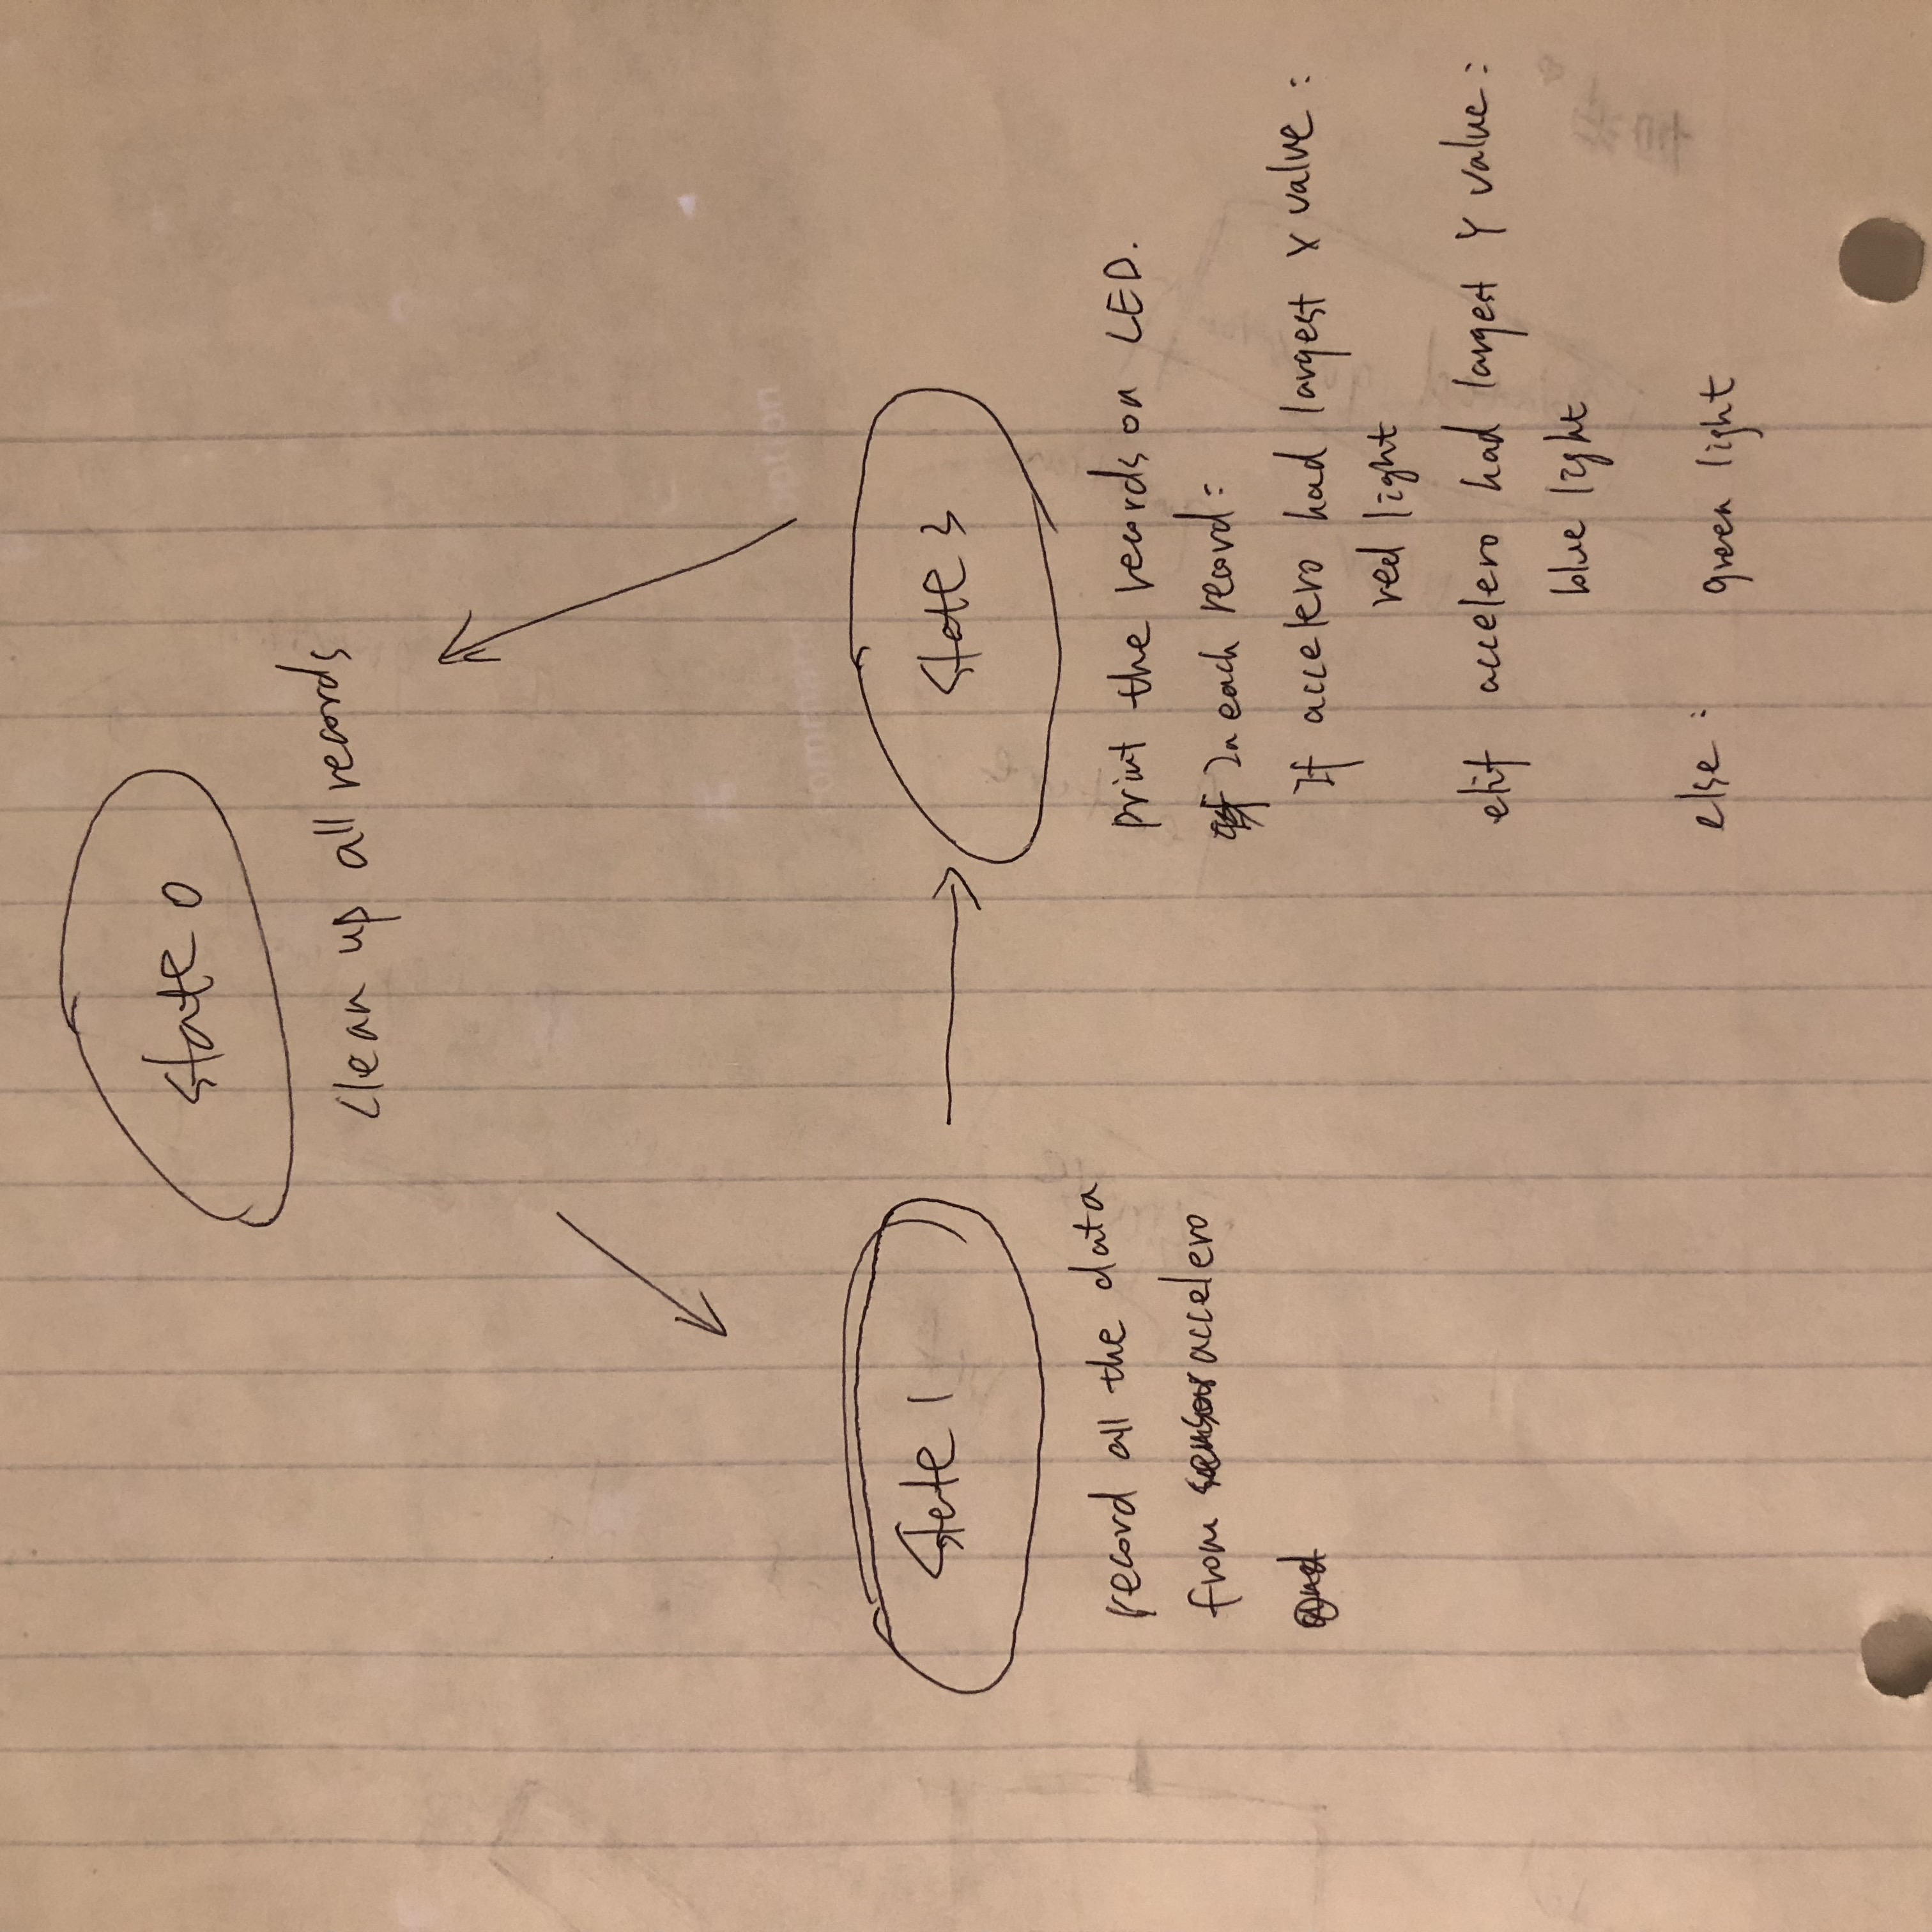 state 0
clean up all records
State 1
State 3
record all the data
from sensor accelero
and
print the records on LED.
In each record:
If accelero had largest X value:
red light
elif accelero had largest Y value:
blue light
else: green light
command option